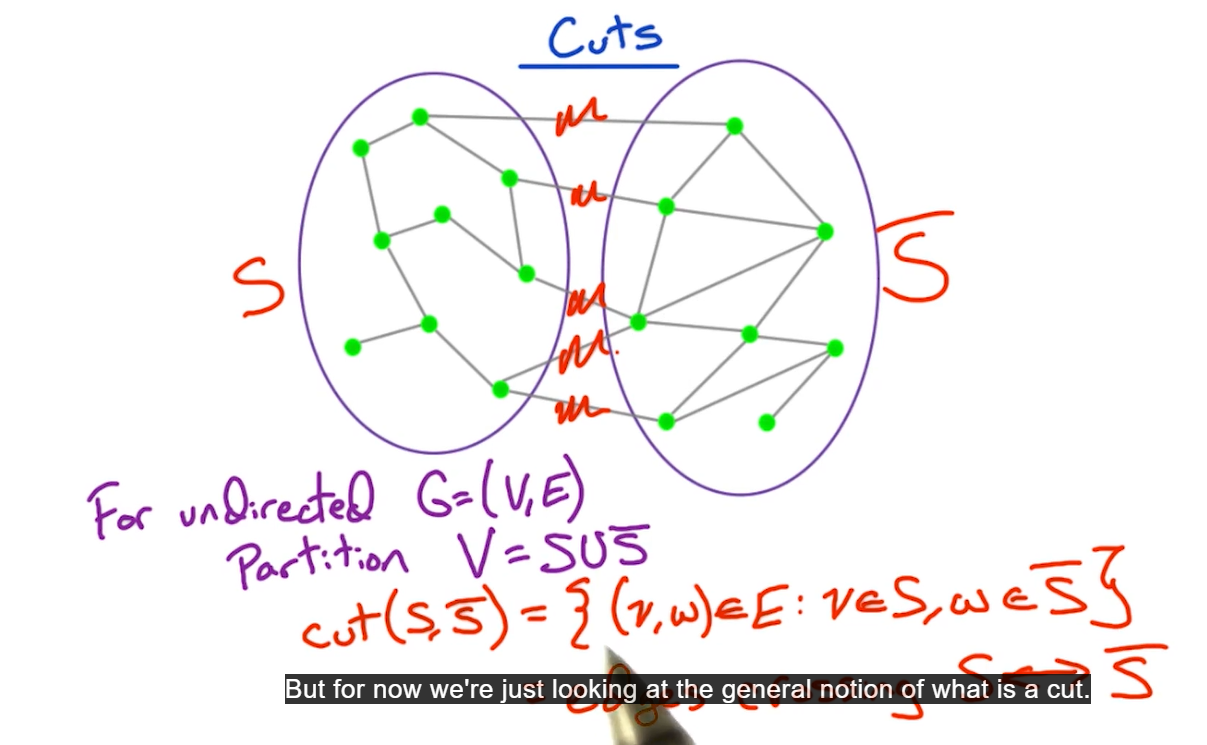 Cuts
S
S̅
For undirected G=(V,E)
Partition V=S∪S̅
cut(S,S̅) = {(v,w)∈E: v∈S, w∈S̅}
= edges crossing S↔S̅
But for now we're just looking at the general notion of what is a cut.